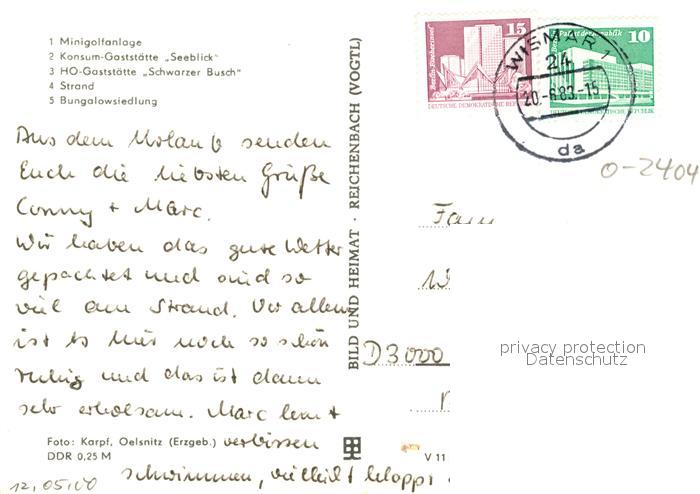 1 Minigolfanlage
2 Konsum-Gaststätte „Seeblick“
3 HO-Gaststätte „Schwarzer Busch“
4 Strand
5 Bungalowsiedlung
Aus dem Urlaub senden
Euch die liebsten Grüße
Conny + Marc.
Wir haben das gute Wetter
gepachtet und sind so
viel am Strand. Vor allem
ist es hier noch so schön
ruhig und das ist dann
sehr erholsam. Marc lernt
verbissen
schwimmen, vielleicht klappt
Foto: Karpf, Oelsnitz (Erzgeb.)
DDR 0,25 M
12,05,00
BILD UND HEIMAT · REICHENBACH (VOGTL)
V 11
15
DEUTSCHE DEMOKRATISCHE REP
Palast der Republik
10
WISMAR 1
24
20.-6.83.-15
da
0-2404
Fam
D3000
privacy protection
Datenschutz